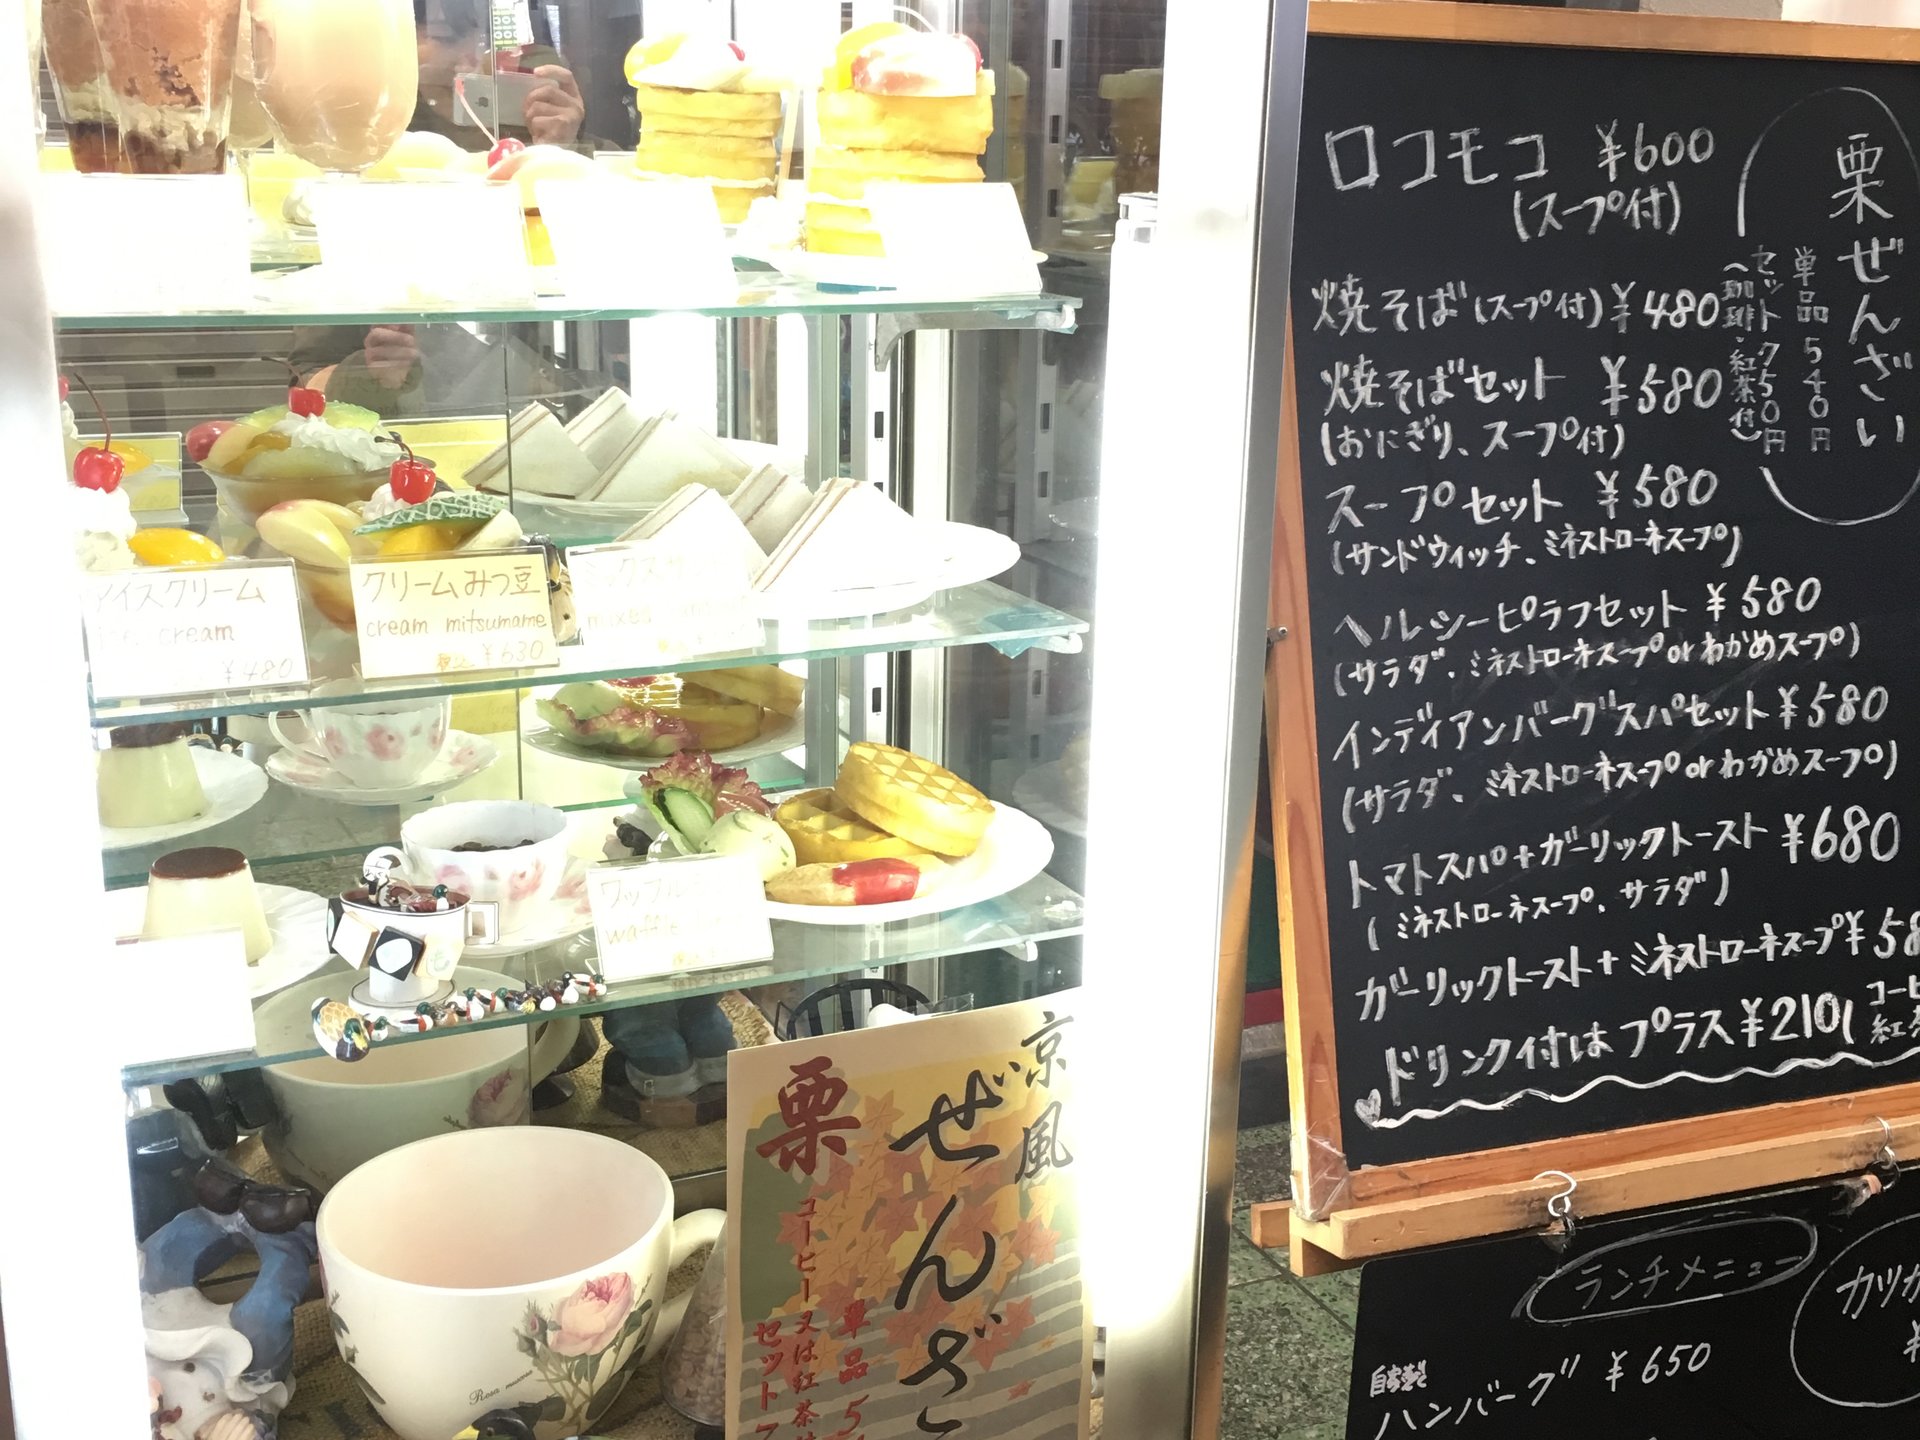 アイスクリーム
ice cream
¥480
クリームみつ豆
cream mitsumame
税込 ¥630
ミックスサ
mixed
ワッフル
waffle
京風
ぜんざ
栗
コーヒー又は紅茶
単品5
セット7
Rosa muscosa
ロコモコ ¥600
(スープ付)
焼そば(スープ付)¥480
焼そばセット ¥580
(おにぎり、スープ付)
スープセット ¥580
(サンドウィッチ、ミネストローネスープ)
ヘルシーピラフセット ¥580
(サラダ、ミネストローネスープorわかめスープ)
インディアンバーグスパセット¥580
(サラダ、ミネストローネスープorわかめスープ)
トマトスパ+ガーリックトースト ¥680
(ミネストローネスープ、サラダ)
ガーリックトースト+ミネストローネスープ¥58
ドリンク付はプラス¥210(
コーヒ
紅茶
栗ぜんざい
単品540円
セット750円
(珈琲・紅茶付)
ランチメニュー
自家製
ハンバーグ ¥650
カツカ
¥